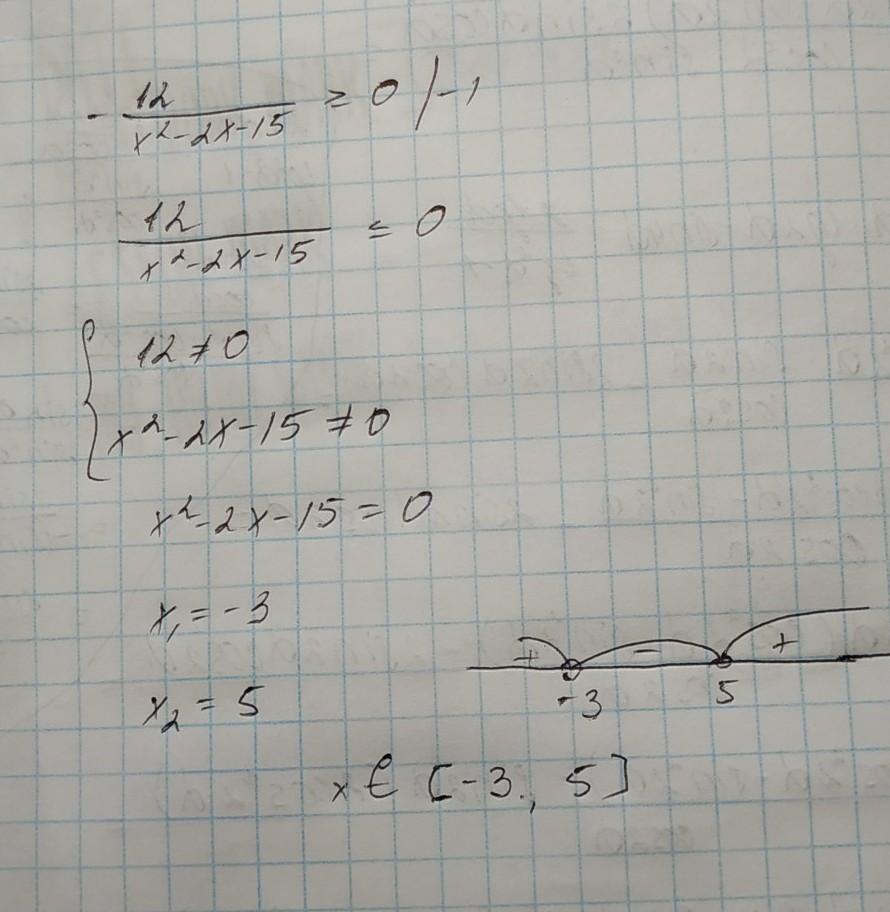 - 12/(x²-2x-15) ≥ 0 /-1
12/(x²-2x-15) ≤ 0
{ 12 ≠ 0
x²-2x-15 ≠ 0
x²-2x-15 = 0
x₁ = -3
+ - +
x₂ = 5
-3 5
x ∈ [-3, 5]